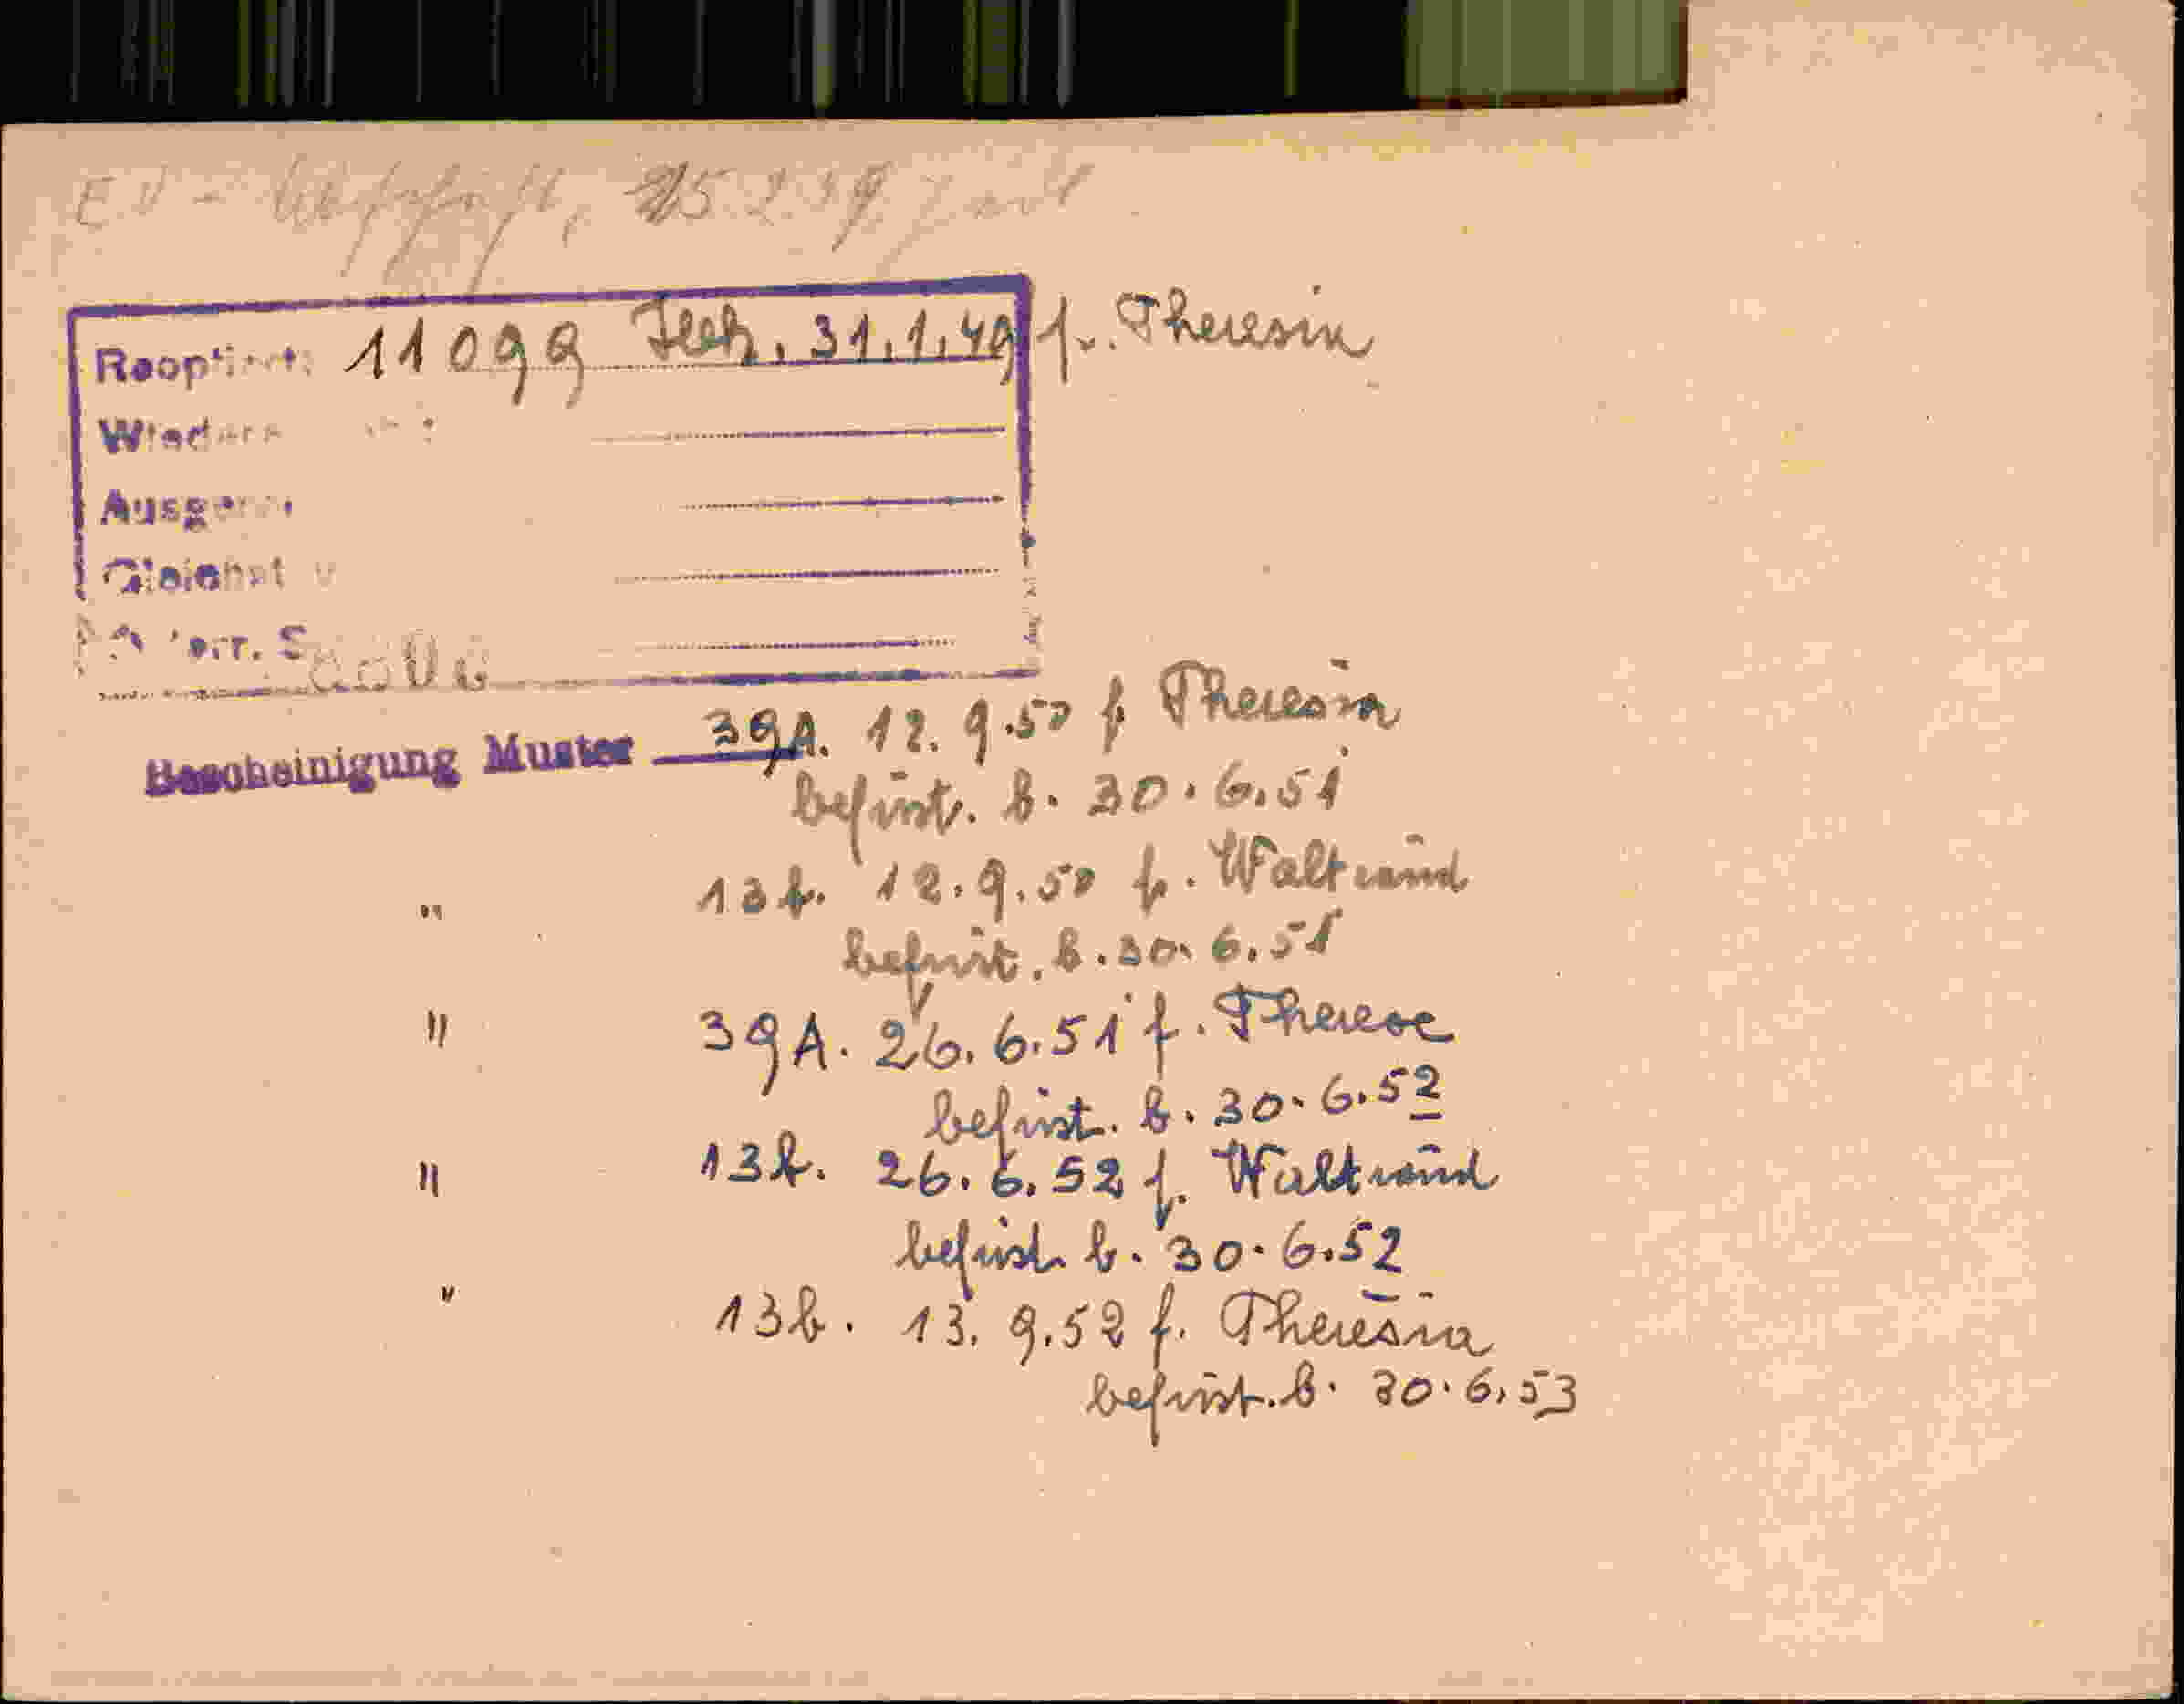 EV - 25239
Reoptiert: 11099 31.1.49 f. Theresia
Bescheinigung Muster 39A. 12. 9.50 f. Theresia
befrist. b. 30.6.51
" 13b. 12.9.50 f. Waltraud
befrist. b. 30.6.51
" 39A. 26.6.51 f. Therese
befrist. b. 30.6.52
" 13b. 26.6.52 f. Waltraud
befrist. b. 30.6.52
" 13b. 13.9.52 f. Theresia
befrist. b. 30.6.53